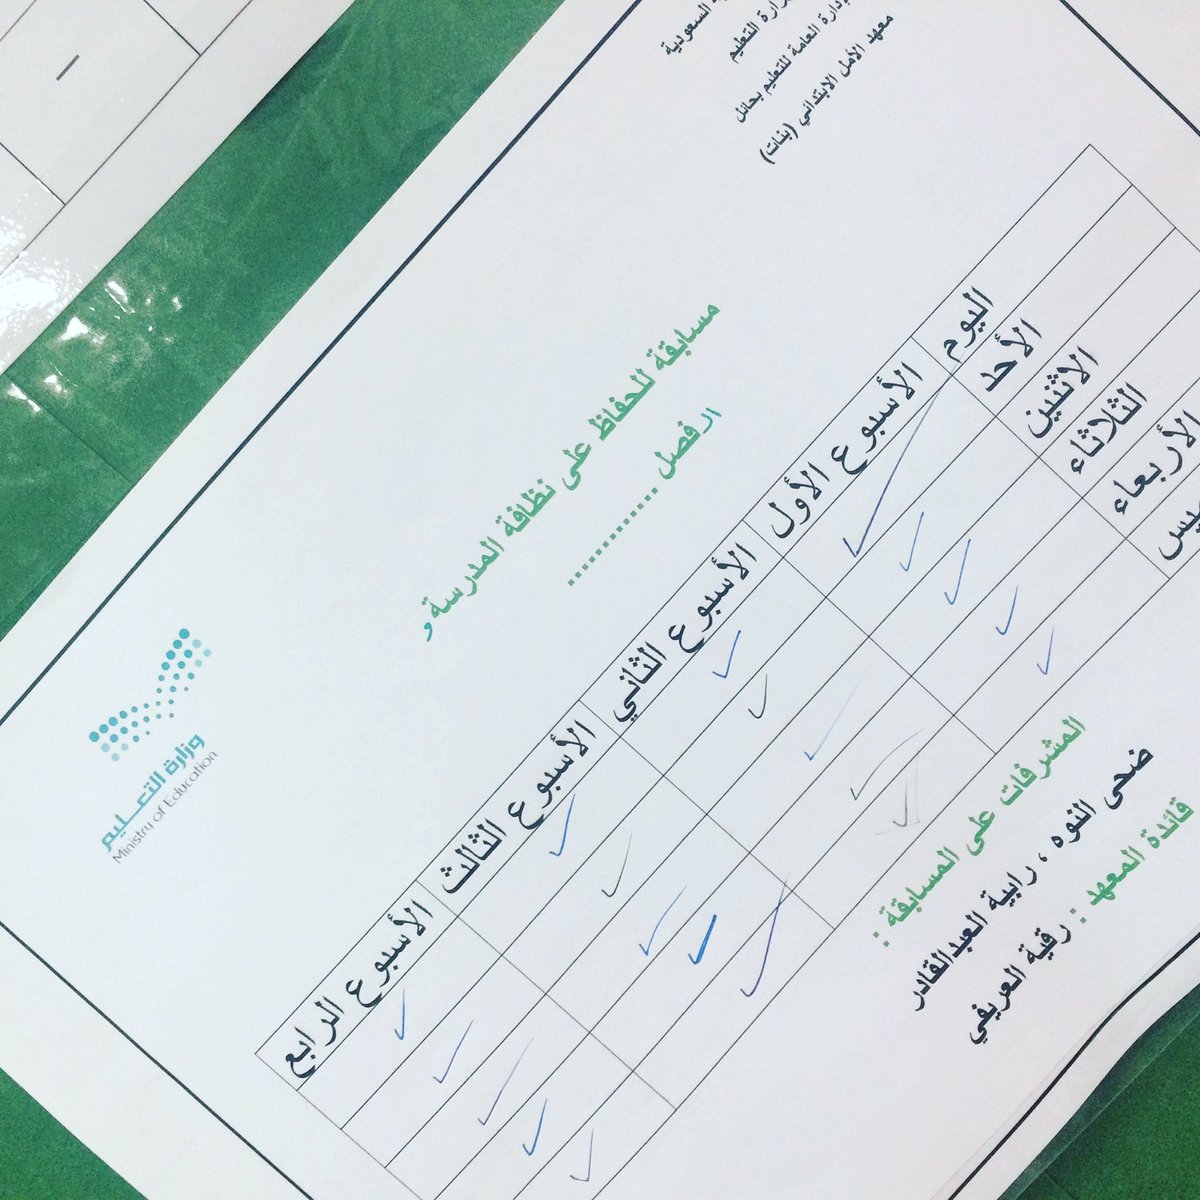 السعودية
وزارة التعليم
الإدارة العامة للتعليم بحائل
معهد الأمل الابتدائي (بنات)
وزارة التعليم
Ministry of Education
مسابقة للحفاظ على نظافة المدرسة و
الفصل ............
اليوم الأسبوع الأول الأسبوع الثاني الأسبوع الثالث الأسبوع الرابع
الأحد
الاثنين
الثلاثاء
الأربعاء
المشرفات على المسابقة :
ضحى النوه ، رابية العبدالقادر
قائدة المعهد : رقية العريفي